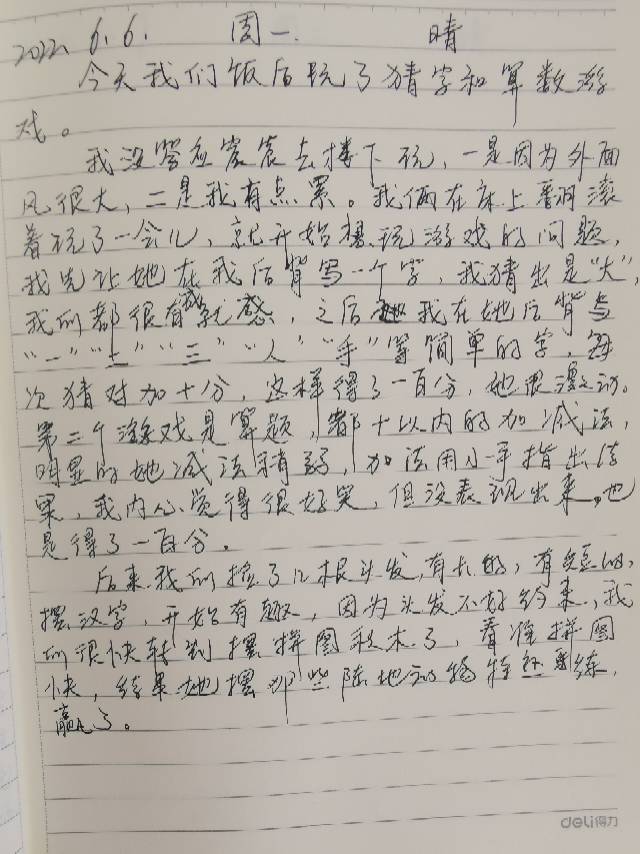 2022.6.6. 周一. 晴
今天我们饭后玩了猜字和算数游
戏。
我没答应宸宸去楼下玩,一是因为外面
风很大,二是我有点累。我俩在床上翻滚
着玩了一会儿,就开始想玩游戏的问题,
我先让她在我后背写一个字,我猜出是“大”,
我们都很有成就感,之后我在她后背写
“一”“土”“三”“人”“手”等简单的字,每
次猜对加十分,这样得了一百分,她很激动。
第二个游戏是算题,都十以内的加减法,
明显的她减法稍弱,加法用小手指出结
果,我内心觉得很好笑,但没表现出来。也
是得了一百分。
后来我们捡了几根头发,有长的,有短的,
摆汉字,开始有趣,因为头发不好约束,我
们很快转到摆拼图积木了,看谁拼图
快,结果她摆那些陆地动物特熟练,
赢了。
deli得力